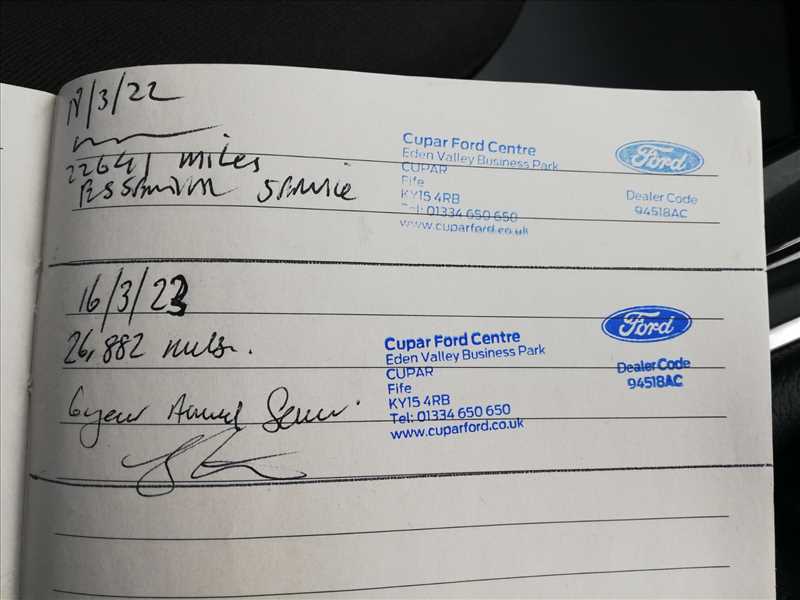 /3/22
22641 miles
SERVICE
Cupar Ford Centre
Eden Valley Business Park
CUPAR
Fife
KY15 4RB
Tel: 01334 650 650
www.cuparford.co.uk
Ford
Dealer Code
94518AC
16/3/23
26,882 miles.
6 year Annual Service
Cupar Ford Centre
Eden Valley Business Park
CUPAR
Fife
KY15 4RB
Tel: 01334 650 650
www.cuparford.co.uk
Ford
Dealer Code
94518AC